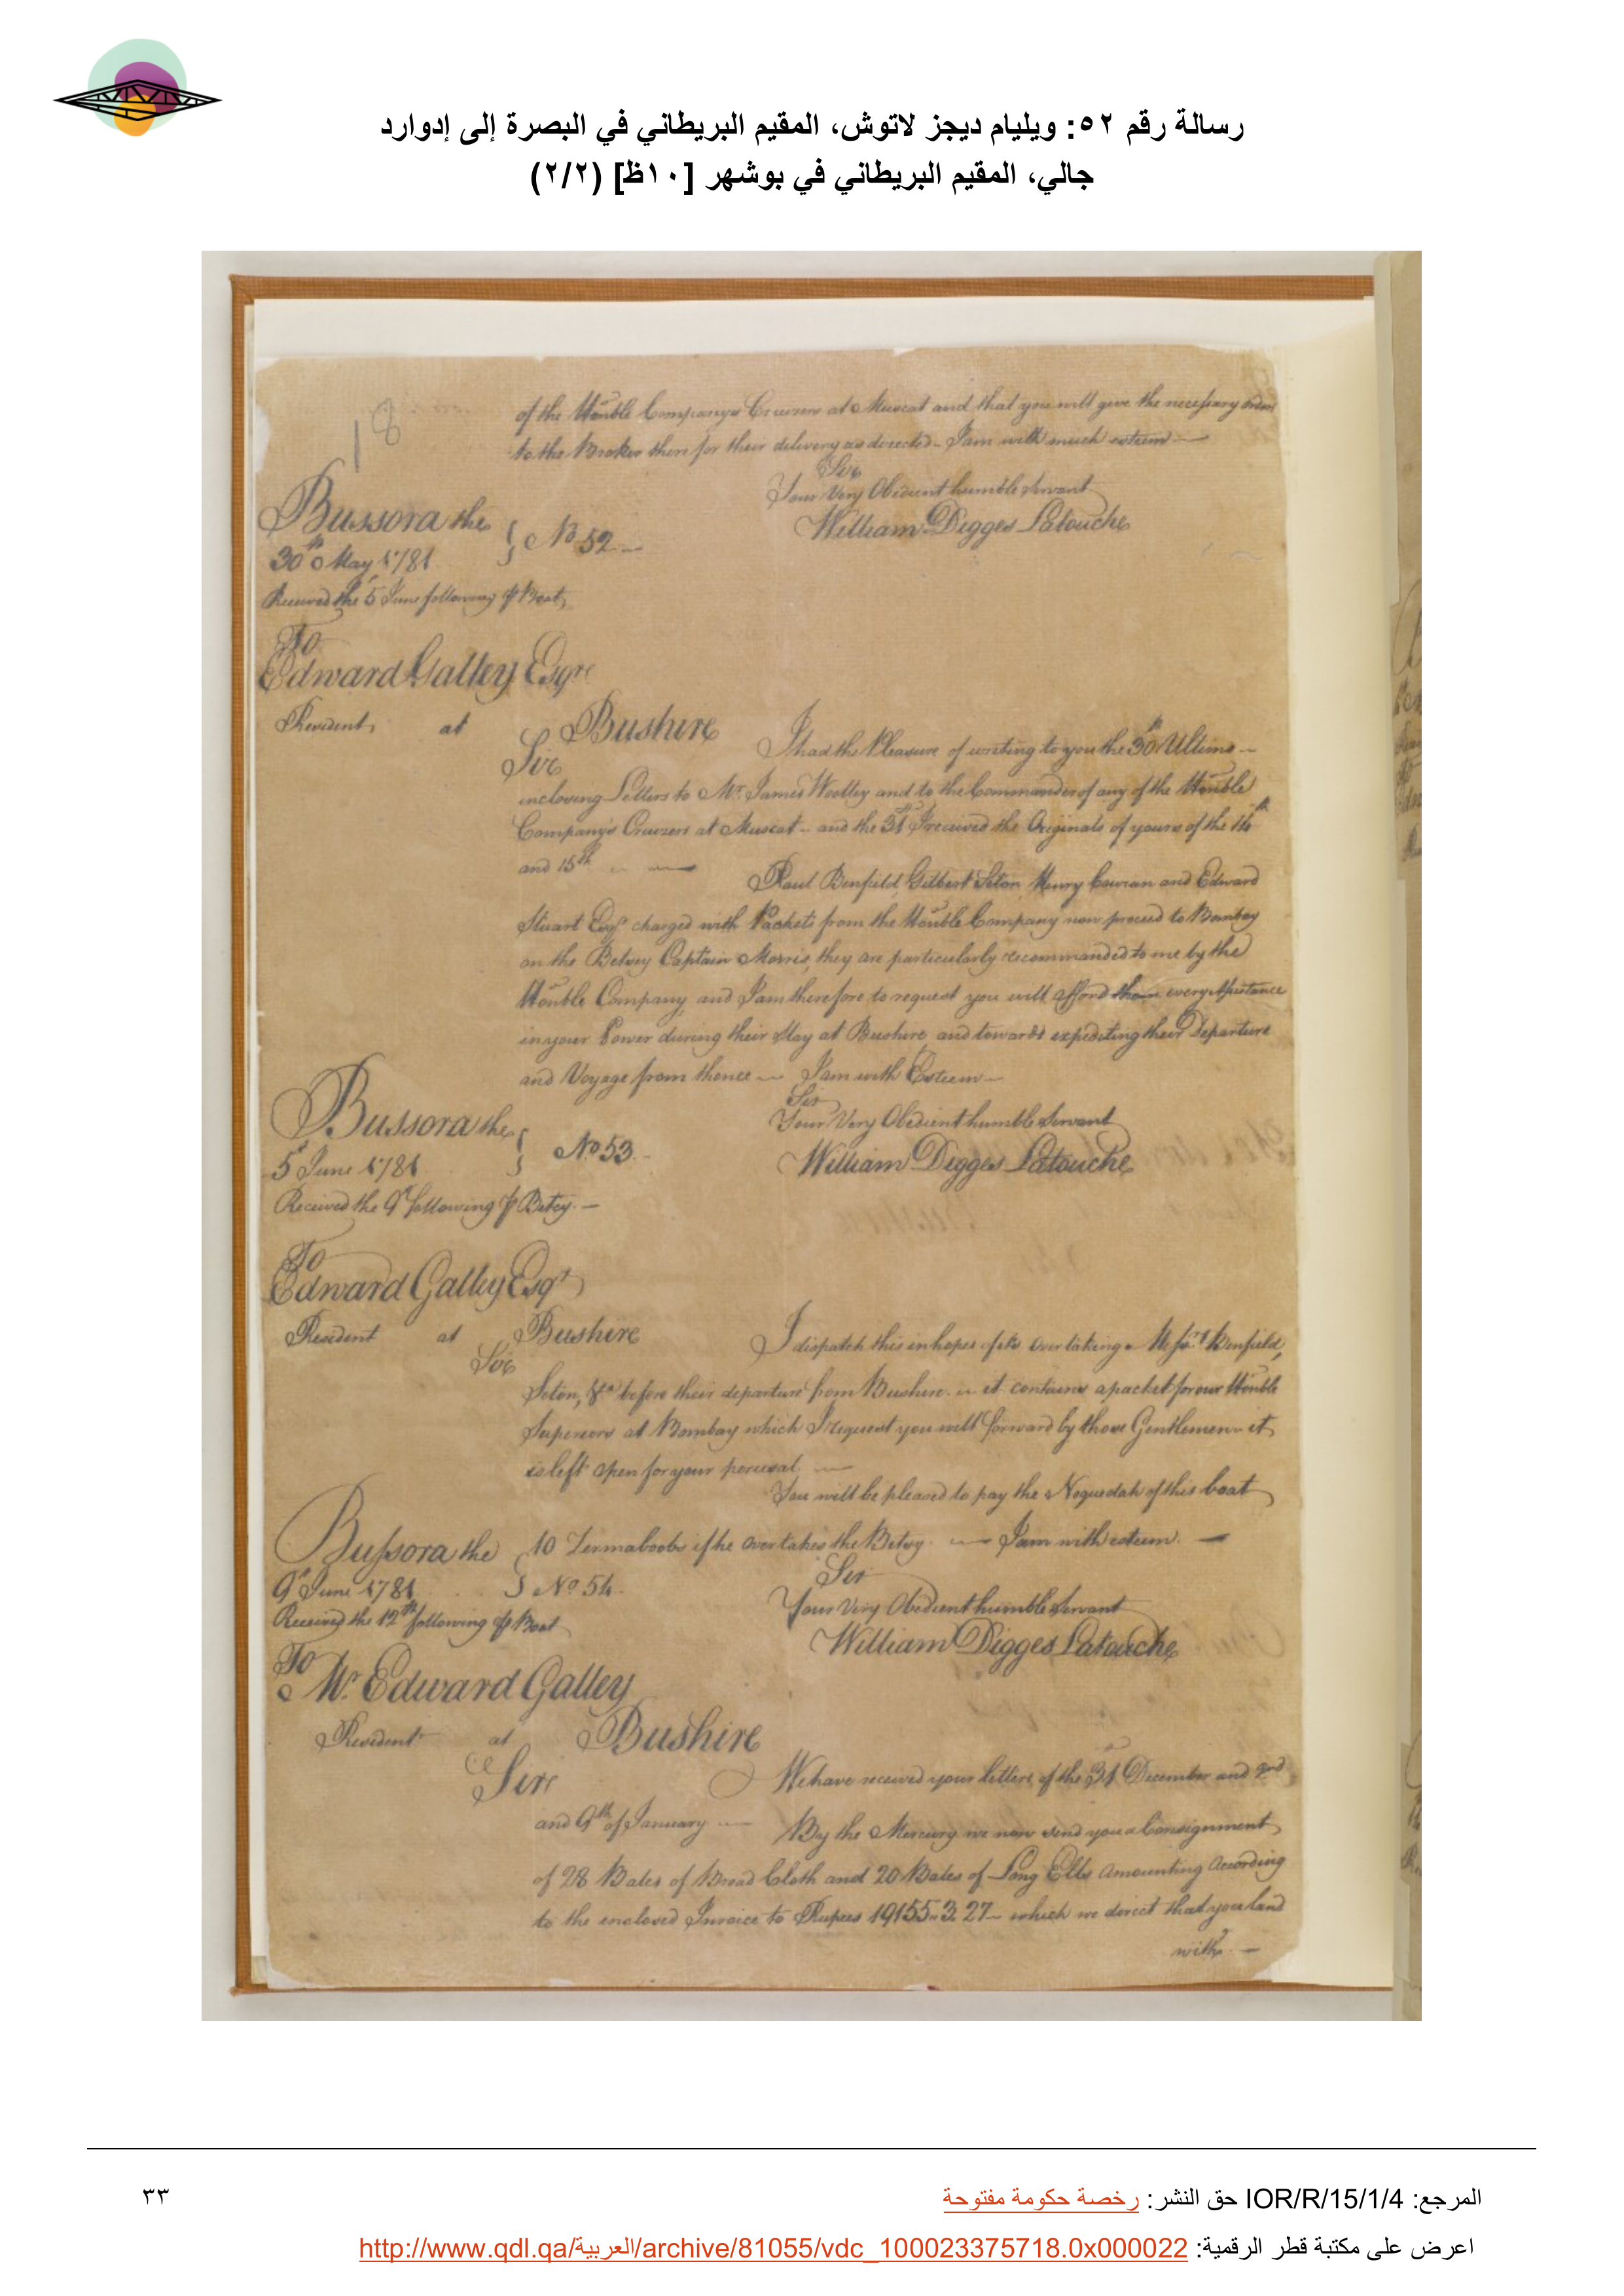 رسالة رقم ٥٢: ويليام ديجز لاتوش، المقيم البريطاني في البصرة إلى إدوارد
جالي، المقيم البريطاني في بوشهر [١٠ظ] (٢/٢)
18
of the Honble Company's Cruisers at Muscat and that you will give the necessary orders
to the Broker there for their delivery as directed - I am with much esteem —
Sir
Your Very Obedient humble Servant
William Digges Latouche
Bussora the
30th May 1781 } No 52 —
Received the 5 June following p Boat,
To
Edward Galley Esqre
Resident at Bushire
Sir
I had the Pleasure of writing to you the 30th Ultimo —
inclosing Letters to Mr. James Woolley and to the Commander of any of the Honble
Company's Cruizers at Muscat - and the 31st I received the Originals of yours of the 14th
and 15th —
Paul Benfield, Gilbert Seton Henry Cowran and Edward
Stuart Esqrs charged with Packets from the Honble Company now proceed to Bombay
on the Betsey Captain Morris, they are particularly recommanded to me by the
Honble Company, and I am therefore to request you will afford them every Assistance
in your Power during their Stay at Bushire and towards expediting their Departure
and Voyage from thence — I am with Esteem —
Sir
Your Very Obedient humble Servant
William Digges Latouche
Bussora the
5 June 1781 } No 53 -
Received the 9th following p Betsy. —
To
Edward Galley Esqr
Resident at Bushire
Sir
I dispatch this in hopes of its overtaking Messrs Benfield,
Seton, &ca before their departure from Bushire - it contains a packet for our Honble
Superiors at Bombay which I request you will forward by those Gentlemen - it
is left open for your perusal. —
You will be pleased to pay the Noquedah of this boat
10 Zermaboobs if he overtakes the Betsy. — I am with esteem. —
Sir
Your Very Obedient humble Servant
William Digges Latouche
Bussora the
9th June 1781 } No 54.
Received the 12th following p Boat
To
Mr. Edward Galley
Resident at Bushire
Sir
We have received your letters of the 31st December and 2nd
and 9th of January — By the Mercury we now send you a Consignment
of 28 Bales of Broad Cloth and 20 Bales of Long Ells amounting according
to the enclosed Invoice to Rupees 19155 .. 3 27 — which we direct that you land
with. —
المرجع: IOR/R/15/1/4 حق النشر: رخصة حكومة مفتوحة
٣٣
اعرض على مكتبة قطر الرقمية: http://www.qdl.qa/العربية/archive/81055/vdc_100023375718.0x000022